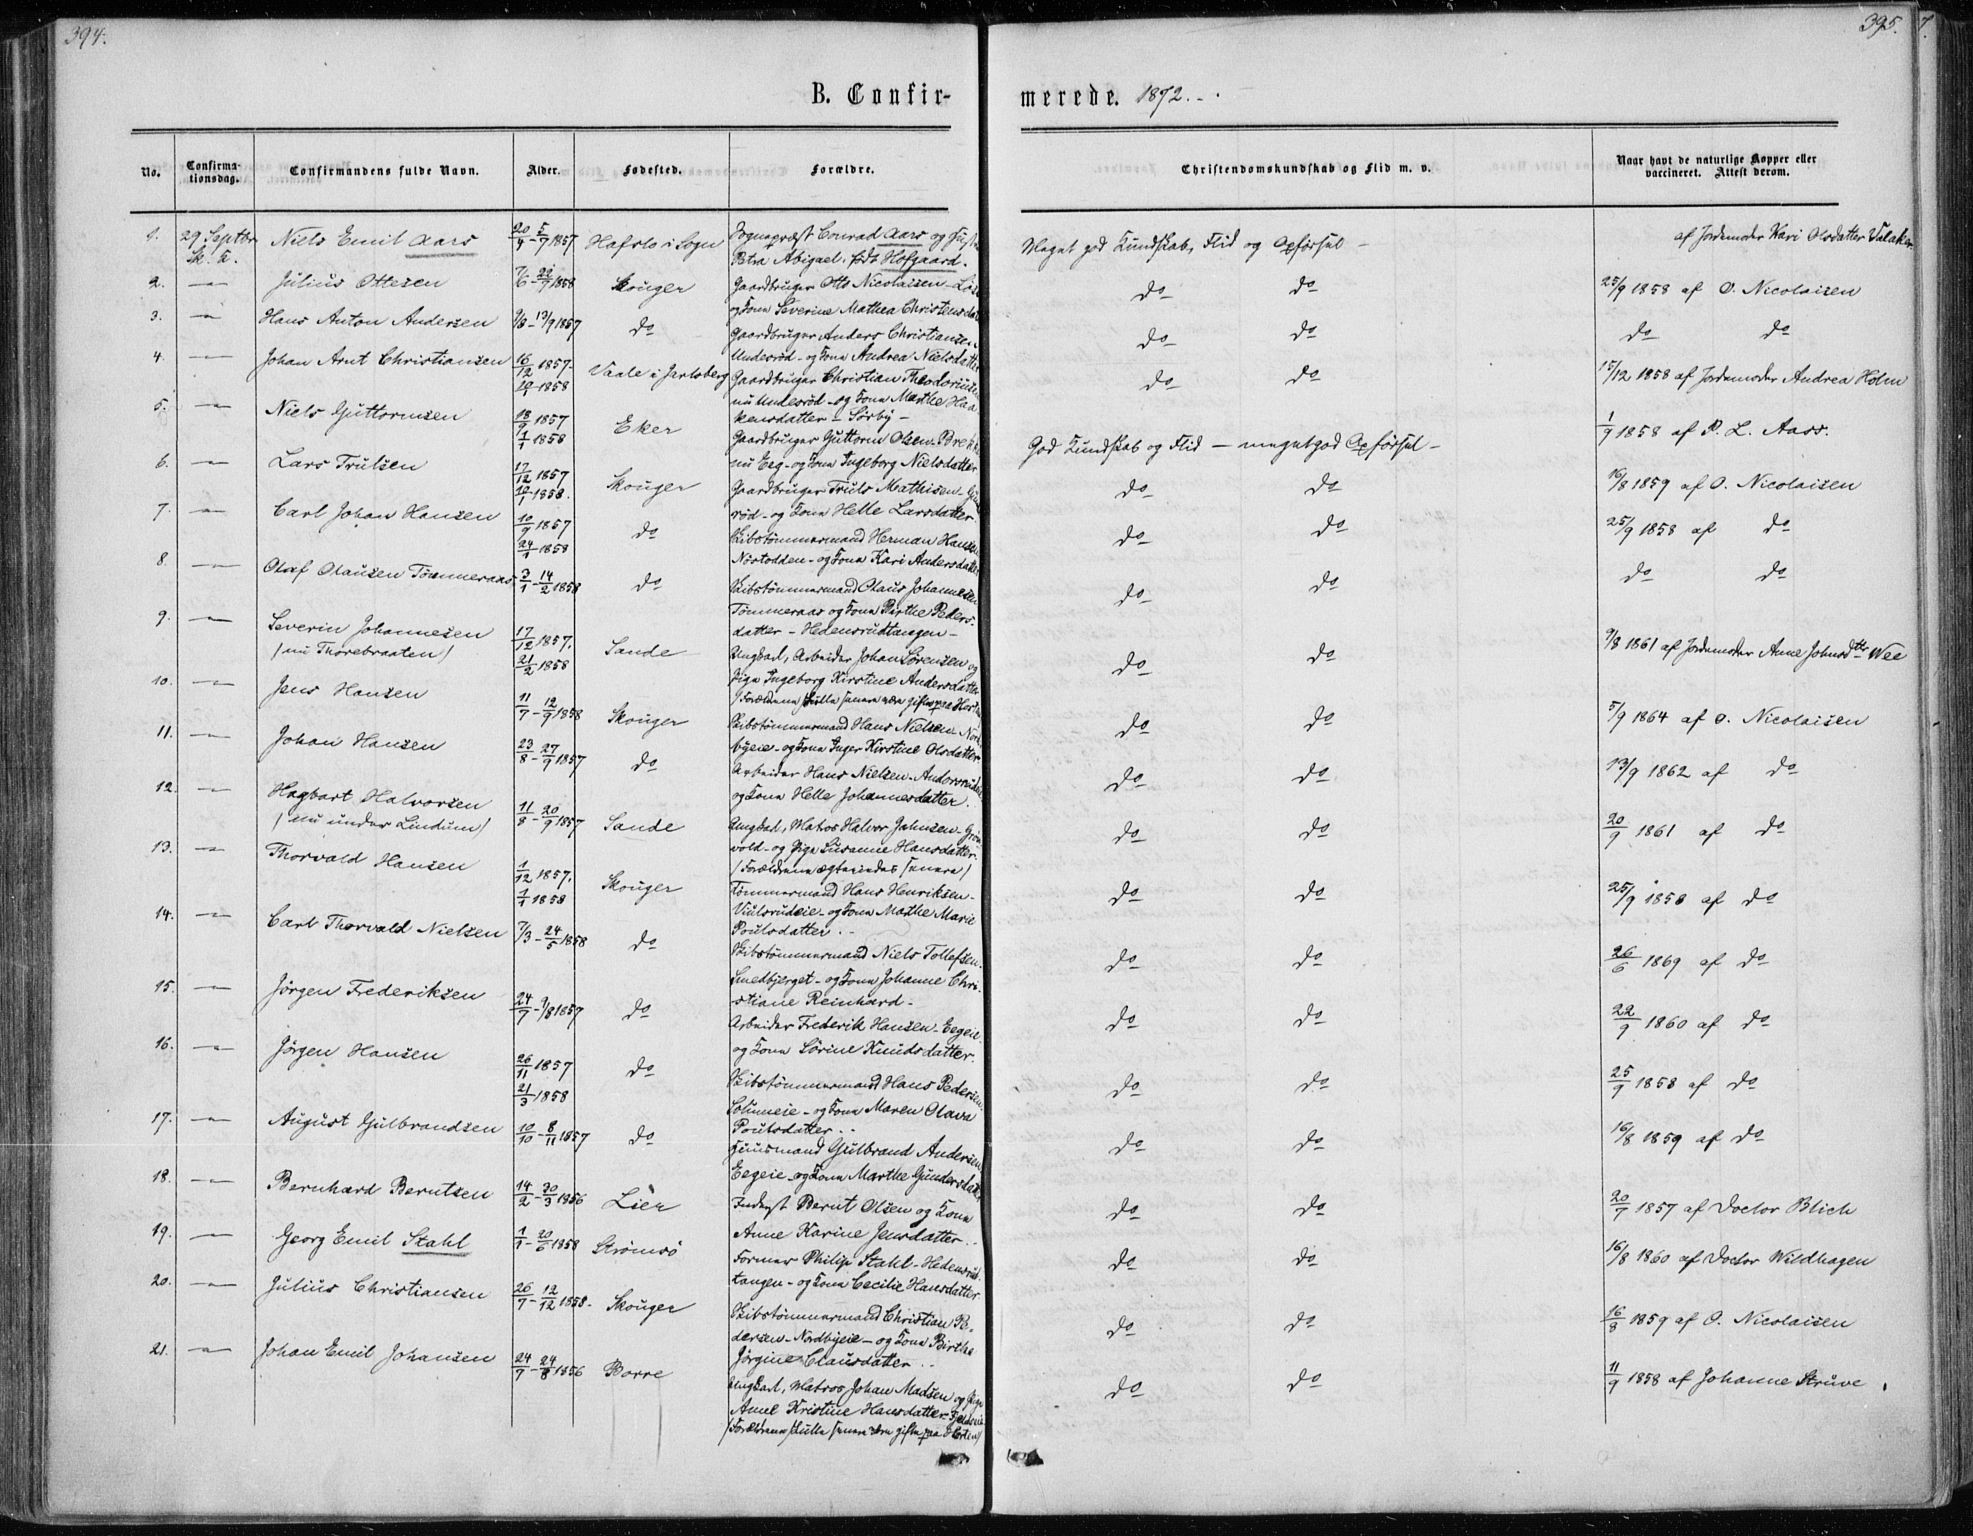 394.
395.
7.
B. Confir-
merede. 1872.
No.
Confirma-
tionsdag.
Confirmandens fulde Navn.
Alder.
Fødested.
Forældre.
Christendomskundskab og Flid m. v.
Naar havt de naturlige Kopper eller
vaccineret. Attest derom.
1. 29 Septbr Niels Emil Aars 20/4 - 5/7 1857 Hafslo i Sogn Sognepræst Conrad Aars og
Sk. K. Petra Abigael, født Hofgaard. Meget god Kundskab, Flid og Opførsel - af Jordemoder Kari Olsdatter Valaker
2. - Julius Ottesen 7/6 - 22/7 1858 Skouger Gaardbruger Otto Nicolaisen
og Kone Severine Mathea do do 25/9 1858 af O. Nicolaisen
3. - Hans Anton Andersen 13/9 1857 do Gaardbruger Anders Christiansen
Underød - og Kone Andrea Nielsdatter do do do do
4. - Johan Arnt Christiansen 16/12 1857 Vaale i Jarlsberg Gaardbruger Christian Theodoriusen
1858 nu Underød - og Kone Marthe Haa
kensdatter - Sørby - do do 15/12 1858 af Jordemoder Andrea Holm
5. - Niels Guttormsen 18/9 1857 Eker Gaardbruger Guttorm Olsen
1/1 1858 nu Eeg - og Kone Ingeborg Nielsdatter God Kundskab og Flid - megetgod Opførsel - 1/9 1858 af P. L. Aass.
6. - Lars Trulsen 17/12 1857 Skouger Gaardbruger Truls Mathisen
1858. rød - og Kone Helle Larsdatter. do do 16/8 1859 af O. Nicolaisen
7. - Carl Johan Hansen 10/9 1857 do Skibstømmermand Herman Hansen
24/1 1858 Nøstodden - og Kone Kari Andersdatter do do 25/9 1858 af do
8. - Olaf Olausen Tømmeraas 3/1 - 14/2 1858 do Skibstømmermand Olaus Johannesen
Tømmeraas og Kone Birthe Peders-
datter - Hedensrudtangen - do do do do
9. - Severin Johannesen 17/12 1857. Sande Ungkarl, Arbeider Johan Sørensen og
(nu Thorebraaten) 21/2 1858 Pige Ingeborg Kirstine Andersdatter
(Forældrene skulle senere være gifte paa do do 9/8 1861 af Jordemoder Anne Johnsdtr Wee
10. - Jens Hansen 11/7 - 12/9 1858 Skouger Skibstømmermand Hans Nielsen Nord
byeie - og Kone Inger Kirstine Olsdatter do do 5/9 1864 af O. Nicolaisen
11. - Johan Hansen 23/8 - 27/9 1857 do Arbeider Hans Nielsen
og Kone Helle Johannesdatter. do do 13/9 1862 af do
12. - Hagbart Halvorsen 11/8 - 20/9 1857 Sande Ungkarl, Matros Halvor Jahnsen
(nu under Lindum) vold - og Pige Susanne Hansdatter
(Forældrene ægteviedes senere) do do 20/9 1861 af do
13. - Thorvald Hansen 1/12 1857. Skouger Tømmermand Hans Henriksen -
1/1 1858 Viulsrudeie - og Kone Marthe Marie
Poulsdatter. do do 25/9 1858 af do
14. - Carl Thorvald Nielsen 7/3 - 24/5 1858 do Skibstømmermand Niels Tollefsen
Smedbjerget - og Kone Johanne Chri-
stiane Reinhard. do do 26/6 1869 af do
15. - Jørgen Frederiksen 24/7 - 9/8 1857 do Arbeider Frederik Hansen - Eegeie
og Kone Sørine Knudsdatter. do do 22/9 1860 af do
16. - Jørgen Hansen 26/11 1857 do Skibstømmermand Hans Pedersen
21/3 1858 og Kone Maren Olava
Poulsdatter do do 25/9 1858 af do
17. - August Gulbrandsen 10/10 - 8/11 1857 do Huusmand Gulbrand Andersen
Eegeie - og Kone Marthe Gundersdatter do do 16/8 1859 af do
18. - Bernhard Berntsen 14/2 - 30/3 1856 Lier Inderst Bernt Olsen og Kone
Anne Karine Jensdatter. do do 20/7 1857 af Doctor Blich
19. - Georg Emil Stahl 1/1 - 20/6 1858 Strømsø Former Philip Stahl - Hedensrud
tangen - og Kone Cecilie Hansdatter do do 16/8 1860 af Doctor Wildhagen
20. - Julius Christiansen 26/7 - 12/12 1858. Skouger Skibstømmermand Christian Pe-
dersen - Nordbyeie - og Kone Birthe
Jørgine Clausdatter do do 16/8 1859 af O. Nicolaisen
21. - Johan Emil Johansen 24/7 - 24/8 1856 Borre Ungkarl, Matros Johan Madsen og Pige
Anne Kristine Hansdatter
(Forældrene skulle senere være gifte paa Horten) do do 11/9 1858 af Johanne Struve